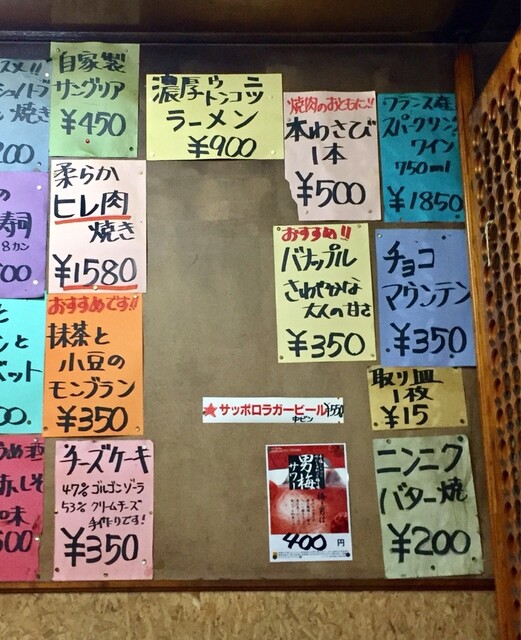 スメ!!
焼き
200
自家製
サングリア
¥450
濃厚ウニ
トンコツ
ラーメン
¥900
焼肉のおともに!!
本わさび
1本
¥500
フランス産
スパークリング
ワイン
750ml
¥1850
の
寿司
8カン
柔らか
ヒレ肉
焼き
¥1580
おすすめ!!
バナップル
さわやかな
大人の甘さ
¥350
チョコ
マウンテン
¥350
と
ンと
ベット
おすすめです!!
抹茶と
小豆の
モンブラン
¥350
取り皿
1枚
¥15
★サッポロラガービール ¥550
中ビン
うめ酒
赤しそ
味
チーズケーキ
47% ゴルゴンゾーラ
53% クリームチーズ
手作りです!
¥350
男梅
サワー
400円
ニンニク
バター焼
¥200